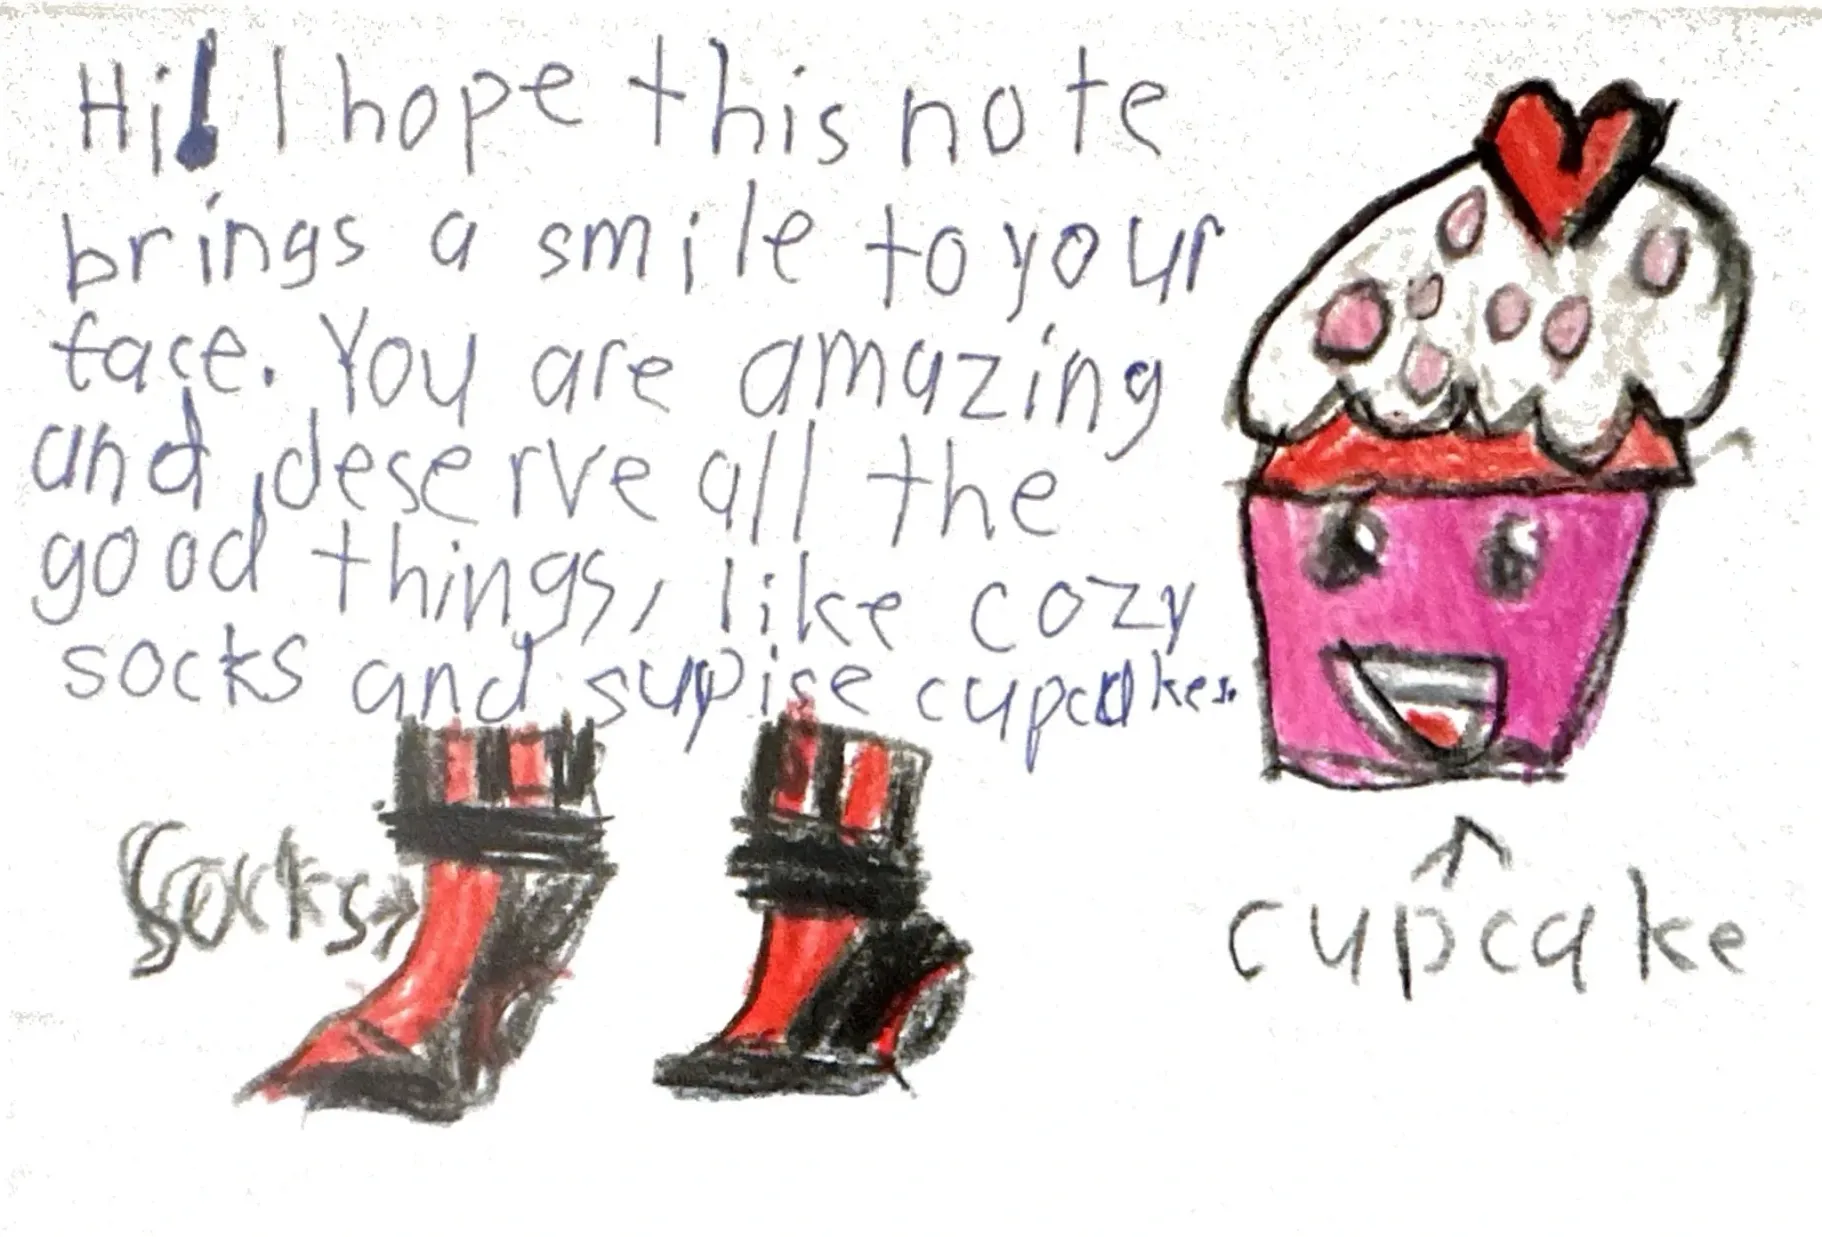 Hi! I hope this note
brings a smile to your
face. You are amazing
and deserve all the
good things, like cozy
socks and supise cupcakes.
socks
cupcake